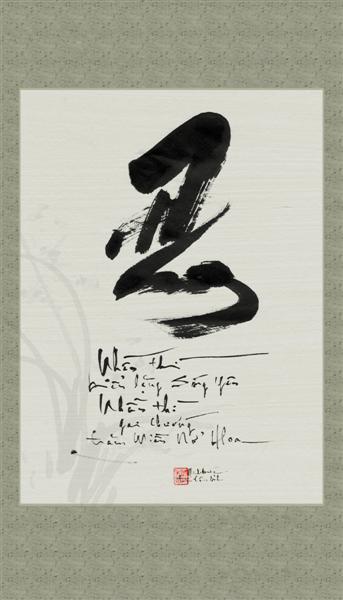 忍
Nhẫn thì
biển lặng Sóng yên
Nhẫn thì
gai chướng
trăm Miền Nở Hoa